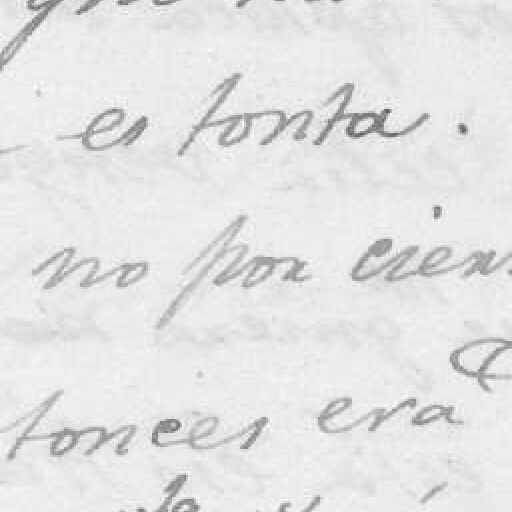 es tonta.
no por cien
tonces era